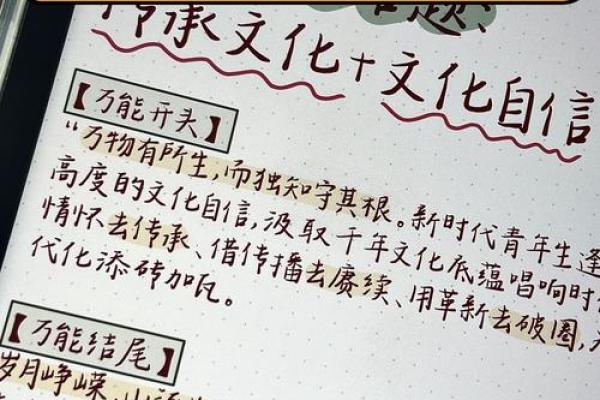 话题:
传承文化+文化自信
【万能开头】
“万物有所生,而独知守其根。新时代青年生逢
高度的文化自信,汲取千年文化底蕴唱响时
情怀去传承、借传播去赓续、用革新去破圈,
代化添砖加瓦。
【万能结尾】
岁月峥嵘,山河